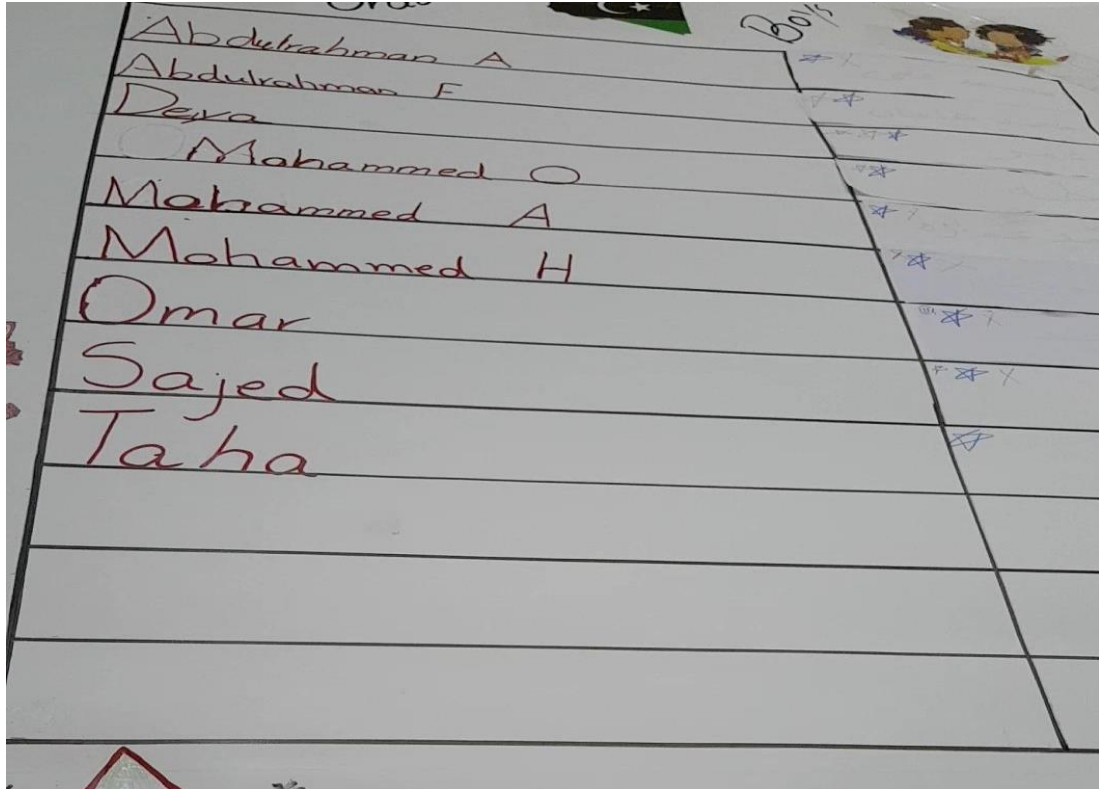 Boys
Abdulrahman A
Abdulrahman F
Deya
Mohammed O
Mohammed A
Mohammed H
Omar
Sajed
Taha